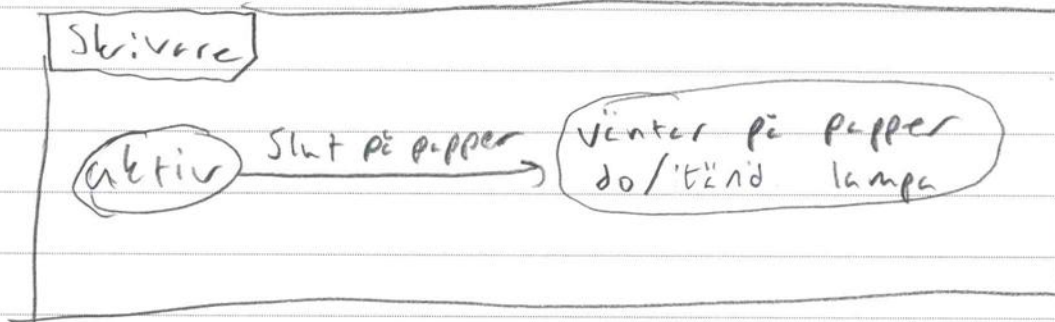 Skrivare
aktiv
Slut på papper
väntar på papper
do/tänd lampa